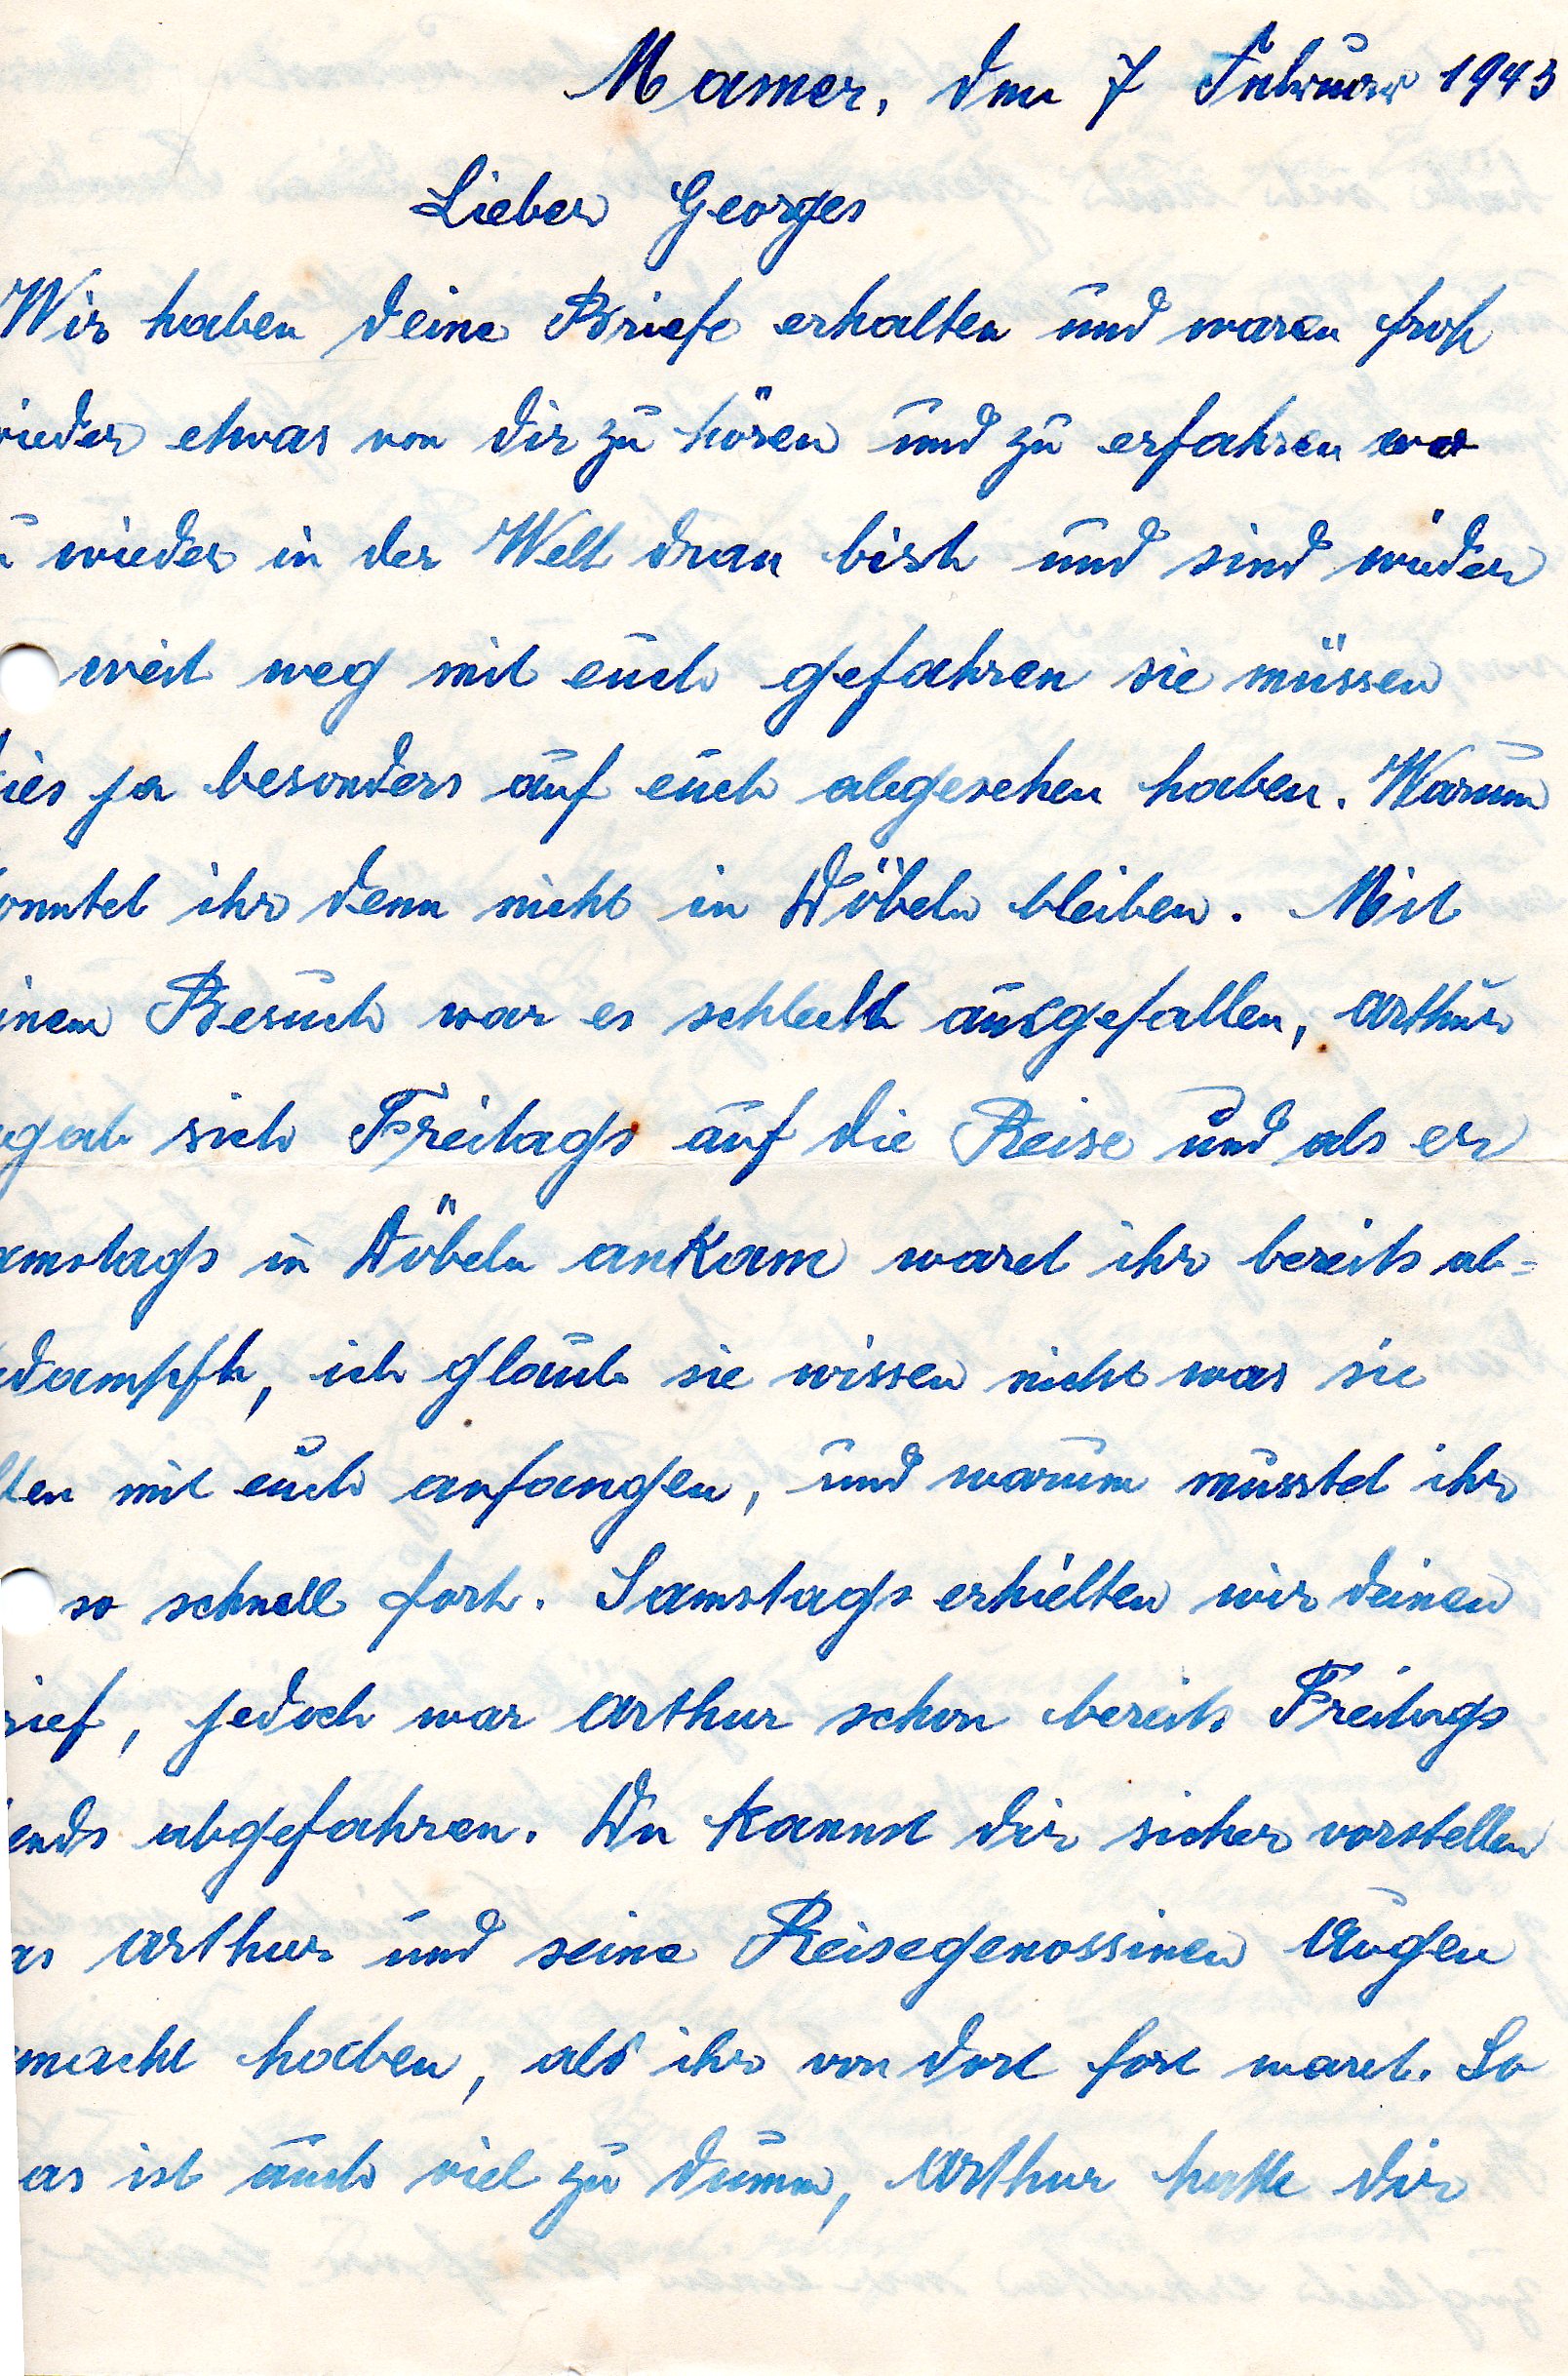 Mamer, den 7 Februar 1943
Lieber Georges
Wir haben deine Briefe erhalten und waren froh
wieder etwas von dir zu hören und zu erfahren wo
u wieder in der Welt dran bist und sind wieder
weit weg mit euch gefahren sie müssen
ies ja besonders auf euch abgesehen haben. Warum
onntet ihr denn nicht in Döbeln bleiben. Mit
inem Besuch war es schlecht ausgefallen, Arthur
egab sich Freitags auf die Reise und als er
amstags in Döbeln ankam waret ihr bereits ab-
edampft, ich glaub sie wissen nicht was sie
llen mit euch anfangen, und warum musstet ihr
so schnell fort. Samstags erhielten wir deinen
rief, jedoch war Arthur schon bereits Freitags
ends abgefahren. Du kannst dir sicher vorstellen
as Arthur und seine Reisegenossinen Augen
macht haben, als ihr von dort fort waret. So
as ist auch viel zu dumm, Arthur hatte dir